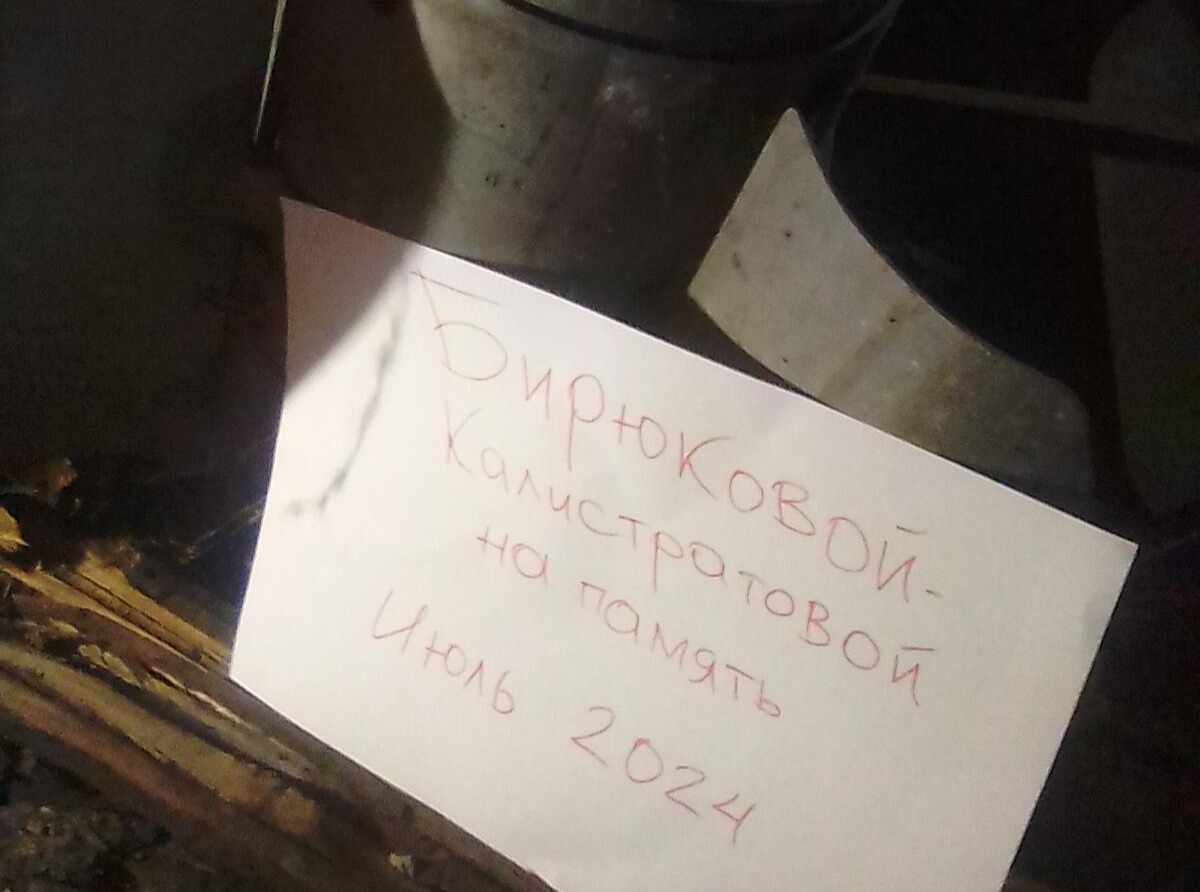 Бирюковой-
Калистратовой
на память
Июль 2024